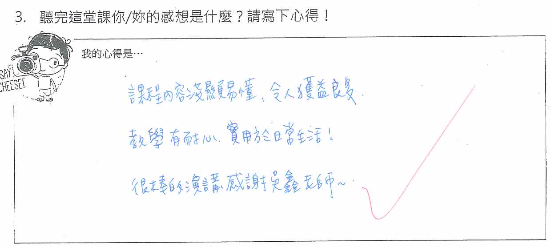 3. 聽完這堂課你/妳的感想是什麼？請寫下心得！
我的心得是…
SAY CHEESE!
課程內容淺顯易懂，令人獲益良多.
教學有耐心，實用於日常生活！
很棒的演講，感謝吳鑫老師！~